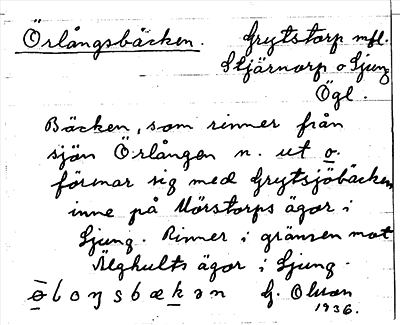 Örlångsbäcken. Grytstorp mfl.
Stjärnorp o Ljung
Ögl.
Bäcken, som rinner från
sjön Örlången n. ut o.
förenar sig med Grytsjöbäcken
inne på Mörstorps ägor i
Ljung. Rinner i gränsen mot
Älghults ägor i Ljung.
G. Olson
1936.